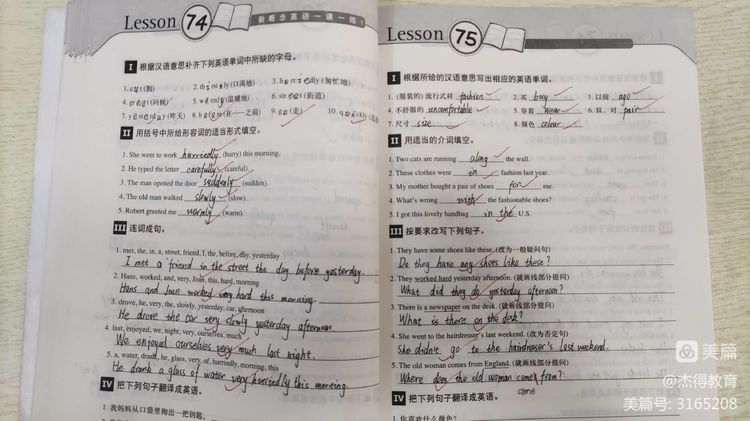 Lesson 74 新概念英语一课一练1
I 根据汉语意思补齐下列英语单词中所缺的字母。
1. cut(割) 2. thirstily(口渴地) 3. hurriedly(匆忙地)
4. greet(问候) 5. warmly(温暖地) 6. street(街道)
7. yesterday(昨天) 8. before(在……之前) 9. go(走) 10.
II 用括号中所给形容词的适当形式填空。
1. She went to work hurriedly (hurry) this morning.
2. He typed the letter carefully (careful).
3. The man opened the door suddenly (sudden).
4. The old man walked slowly (slow).
5. Robert greeted me warmly (warm).
III 连词成句。
1. met, the, in, a, street, friend, I, the, before, day, yesterday
I met a friend in the street the day before yesterday.
2. Hans, worked, and, very, Joan, this, hard, morning
Hans and Joan worked very hard this morning.
3. drove, he, very, the, slowly, yesterday, car, afternoon
He drove the car very slowly yesterday afternoon.
4. last, enjoyed, we, night, very, ourselves, much
We enjoyed ourselves very much last night.
5. a, water, drank, he, glass, very, of, hurriedly, morning, this
He drank a glass of water very hurriedly this morning.
IV 把下列句子翻译成英语。
1. 我妈妈从口袋里掏出一把钥匙。
Lesson 75
I 根据所给的汉语意思写出相应的英语单词。
1. (服装的)流行式样 fashion 2. 买 buy 3. 以前 ago
4. 不舒服的 uncomfortable 5. 穿着 wear 6. 双，对 pair
7. 尺寸 size 8. 颜色 colour
II 用适当的介词填空。
1. Two cats are running along the wall.
2. These clothes were in fashion last year.
3. My mother bought a pair of shoes for me.
4. What's wrong with the fashionable shoes?
5. I got this lovely handbag in the U.S.
III 按要求改写下列句子。
1. They have some shoes like these. (改为一般疑问句)
Do they have any shoes like these?
2. They worked hard yesterday afternoon. (就画线部分提问)
What did they do yesterday afternoon?
3. There is a newspaper on the desk. (就画线部分提问)
What is there on the desk?
4. She went to the hairdresser's last weekend. (改为否定句)
She didn't go to the hairdresser's last weekend.
5. The old woman comes from England. (就画线部分提问)
Where does the old woman comes from?
come
IV 把下列句子翻译成英语。
1. 你喜欢什么颜色?
美篇
@杰得教育
美篇号: 3165208